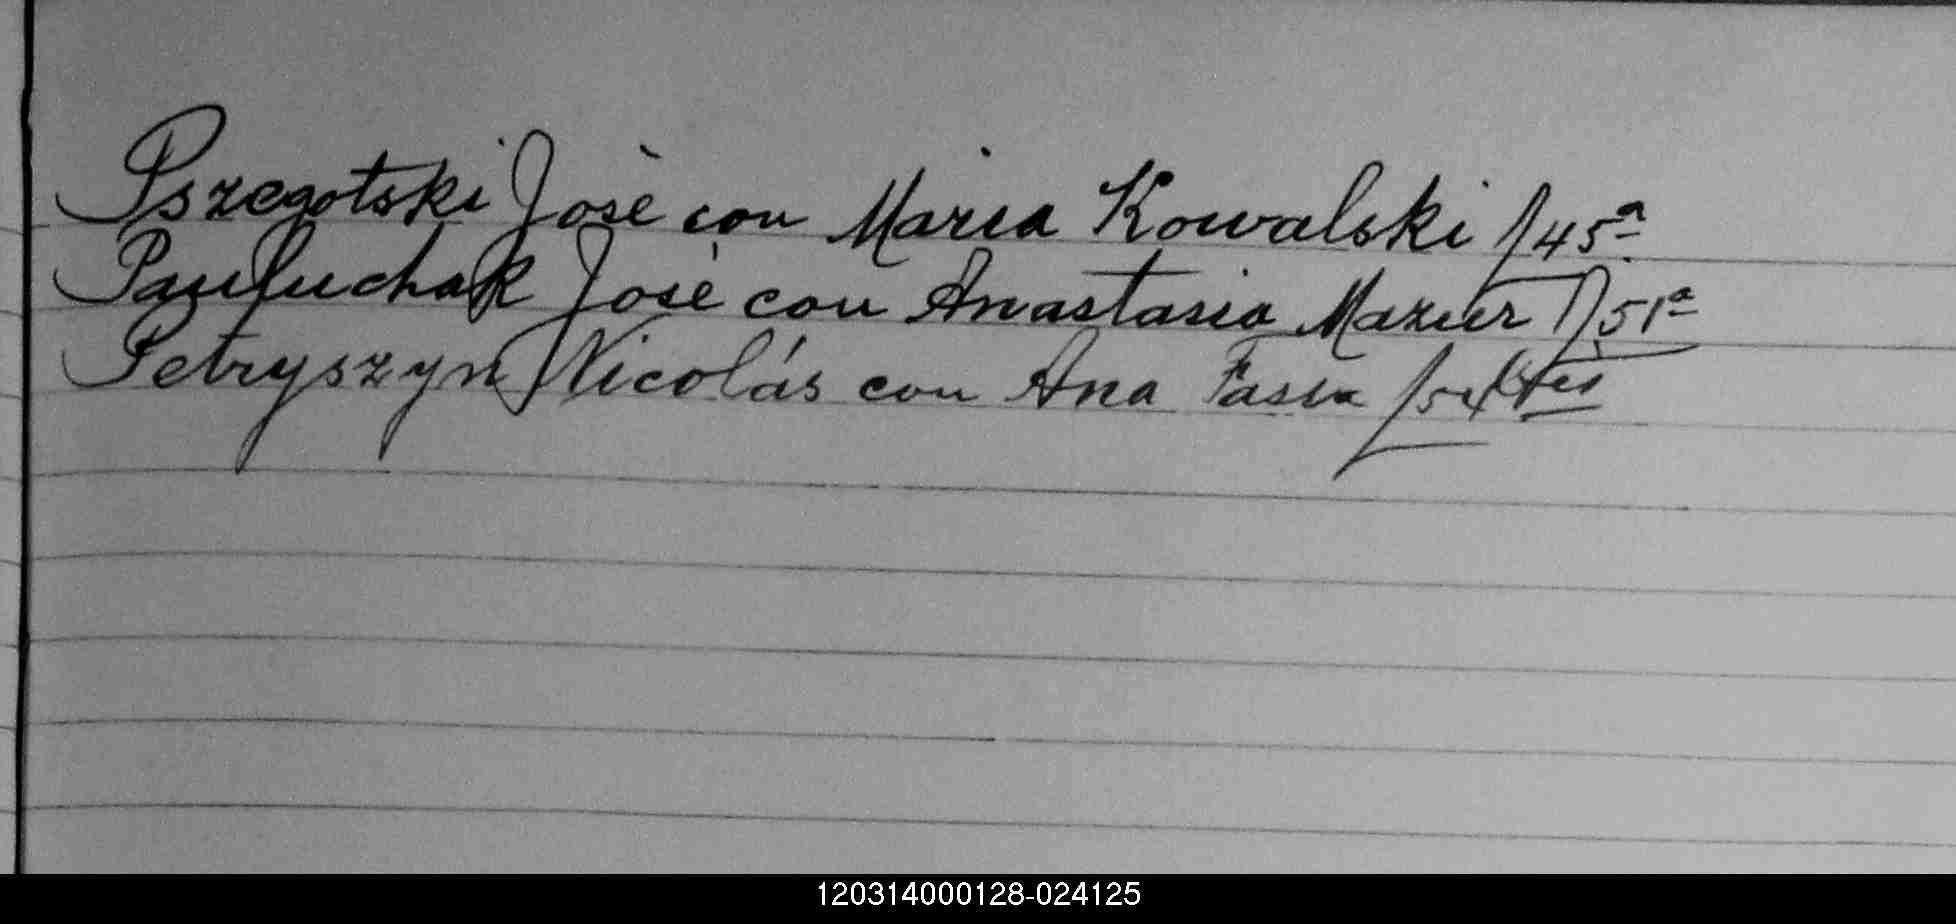 Pszegotski José con Maria Kowalski /45ª
Pauluchak José con Anastasia Mazur /51ª
Petryszyn Nicolás con Ana Fasia /54
120314000128-024125